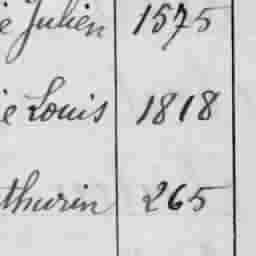 e Julien 1575
e Louis 1818
thurin 265